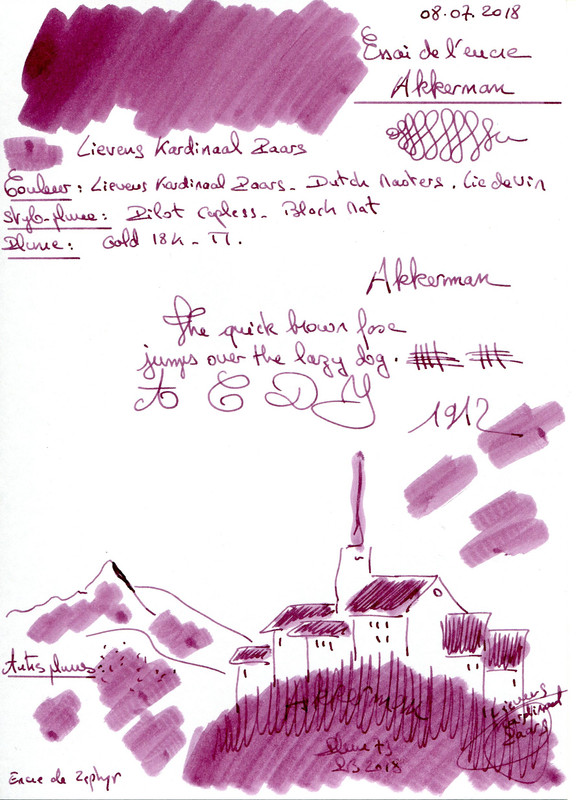 08.07.2018
Essai de l'encre
Akkerman
Lievens Kardinaal Paars
Couleur : Lievens Kardinaal Paars - Dutch Masters . Lie de vin
Stylo-plume : Pilot Capless - Black Mat
Plume : Gold 18K -
Akkerman
The quick brown foxe
jumps over the lazy dog.
A C D Y
1912
Autres plumes
Akkerman
Plume 73
2018
Lievens
Kardinaal
Paars
Encre de Zephyr